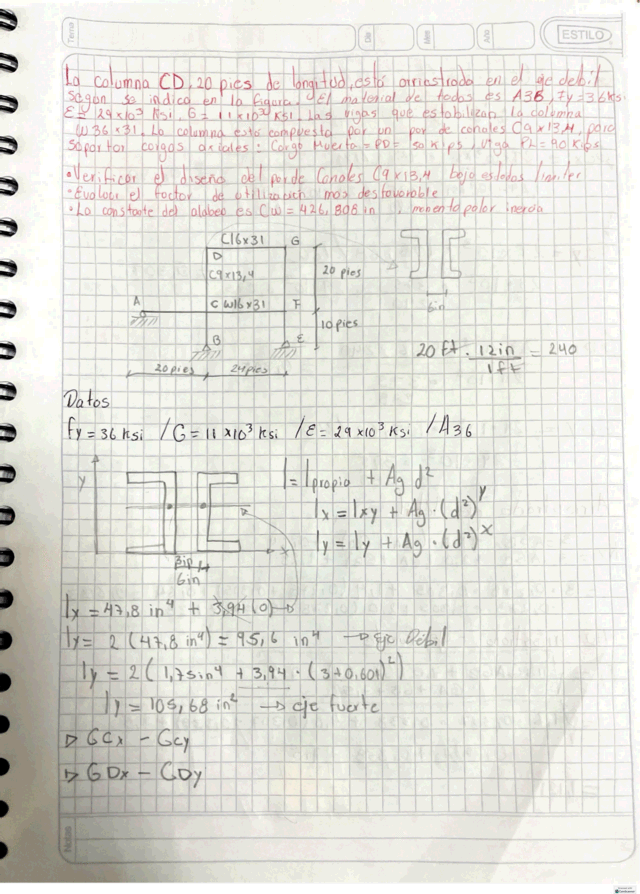 Tema
Día
Mes
Año
ESTILO
La columna CD, 20 pies de longitud, está arriostrada en el eje debil
según se indica en la figura. El material de todas es A36, Fy = 36 Ksi
E = 29x10³ Ksi, G = 11x10³ Ksi. Las vigas que estabilizan la columna
W36x31. La columna está compuesta por un par de canales C9x13,4, para
soportar cargas axiales: Carga Muerta = PD = 50 Kips, viga PL = 90 Kips
• Verificar el diseño del par de Canales C9x13,4 bajo estados límites
• Evalore el factor de utilización mas desfavorable
• La constante del alabeo es Cw = 426,808 in, momento polar inercia
C16x31
G
D
C9x13,4
20 pies
6in
A
C W16x31
F
B
E
10 pies
20 pies
24 pies
20 ft · 12in / 1ft = 240
Datos
Fy = 36 Ksi / G = 11x10³ Ksi / E = 29x10³ Ksi / A36
Y
I = Ipropia + Ag d²
Ix = Ixy + Ag · (d²)ʸ
Iy = Iy + Ag · (d²)ˣ
x
3in
6in
Ix = 47,8 in⁴ + 3,94 (0)
Ix = 2 (47,8 in⁴) = 95,6 in⁴ → Eje Débil
Iy = 2 (1,75in⁴ + 3,94 · (3+0,601)²)
Iy = 105,68 in² → eje fuerte
▷ GCx - Gcy
▷ GDx - GDy
Notas